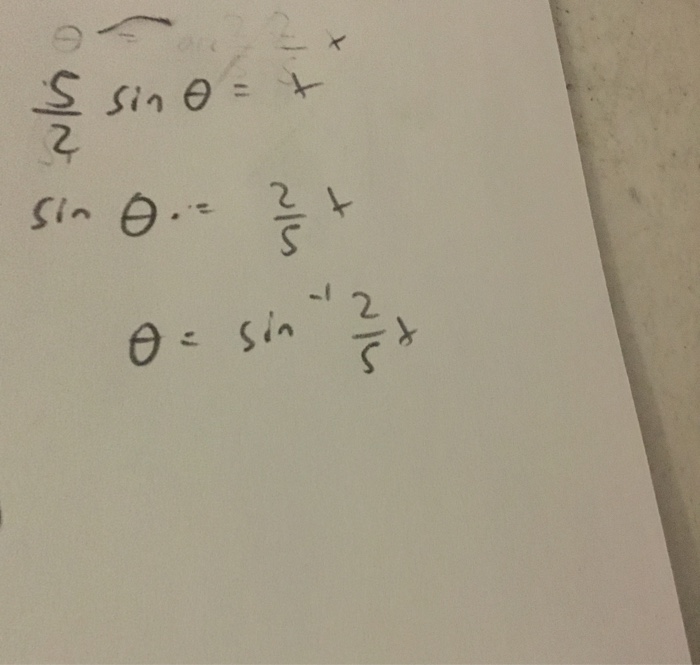 θ = 2/5 x
5/2 sin θ = x
sin θ . = 2/5 x
θ = sin⁻¹ 2/5 x